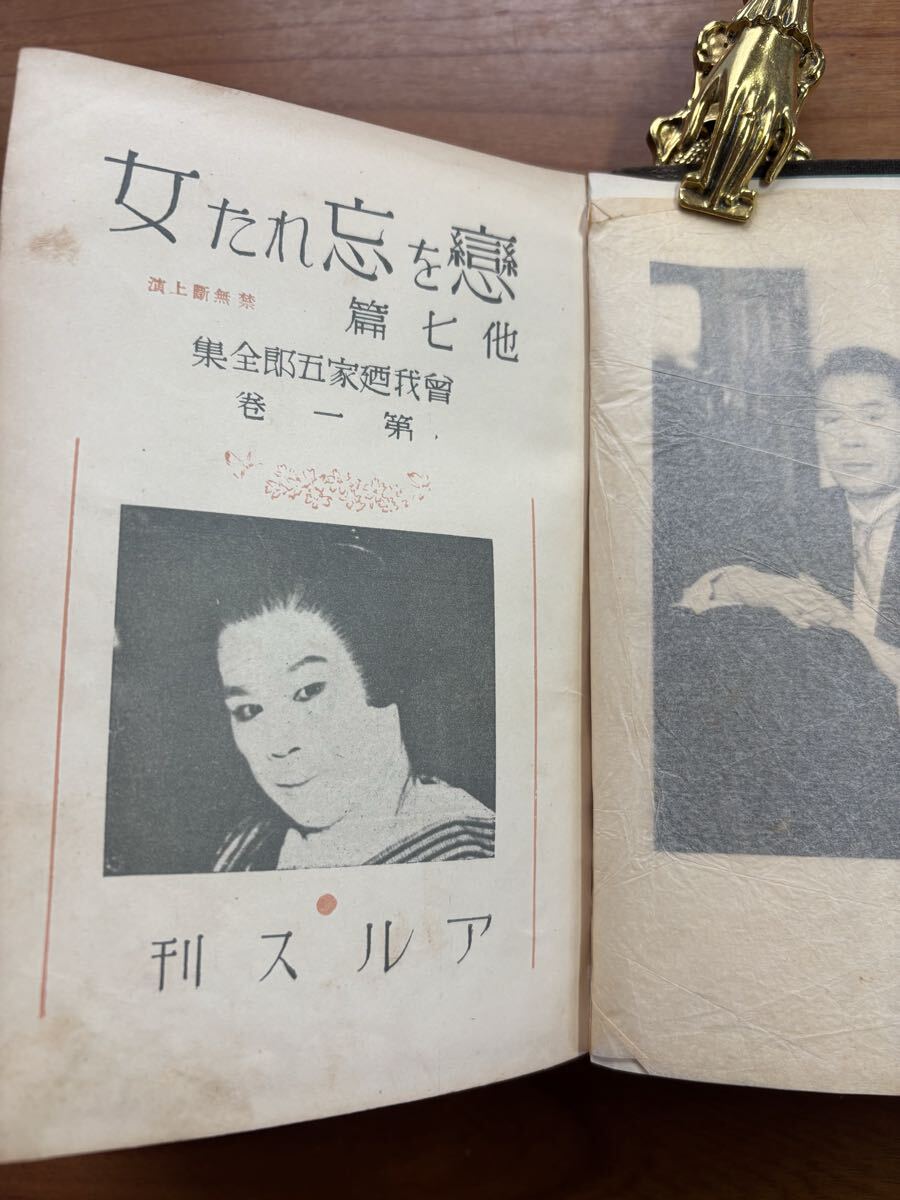 戀を忘れたれ女
他七篇
禁無斷上演
曾我廼家五郎全集
第一卷
アルス刊